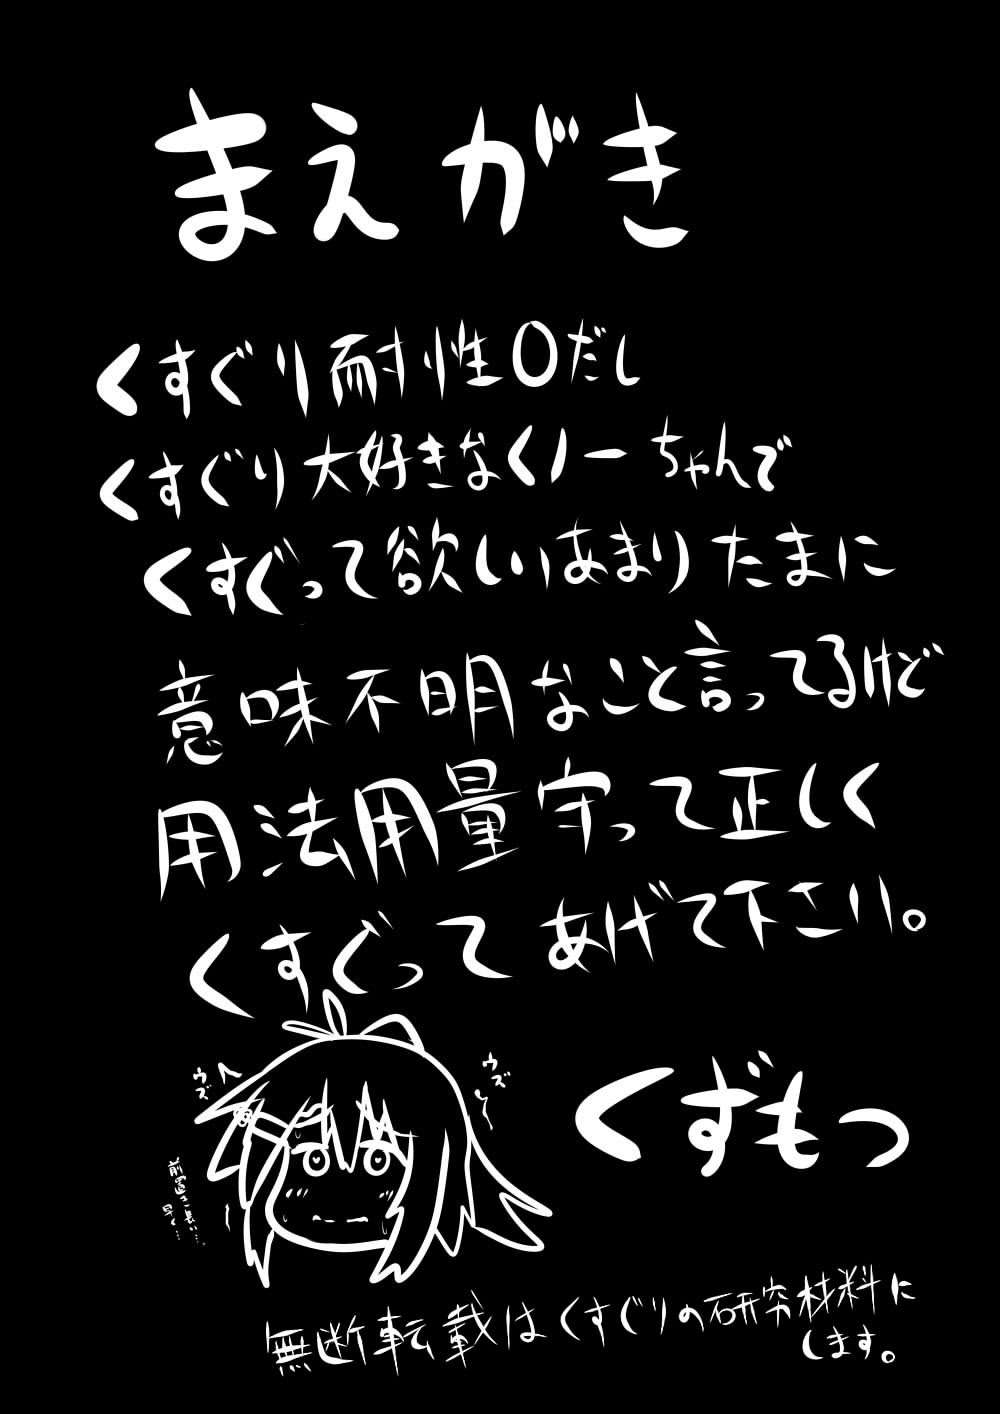 まえがき
くすぐり耐性0だし
くすぐり大好きなくノ一ちゃんで
くすぐって欲しいあまりたまに
意味不明なこと言ってるけど
用法用量守って正しく
くすぐってあげて下さい。
ウズ
ウズ
前置き長い…
早く…
くずもつ
無断転載はくすぐりの研究材料に
します。